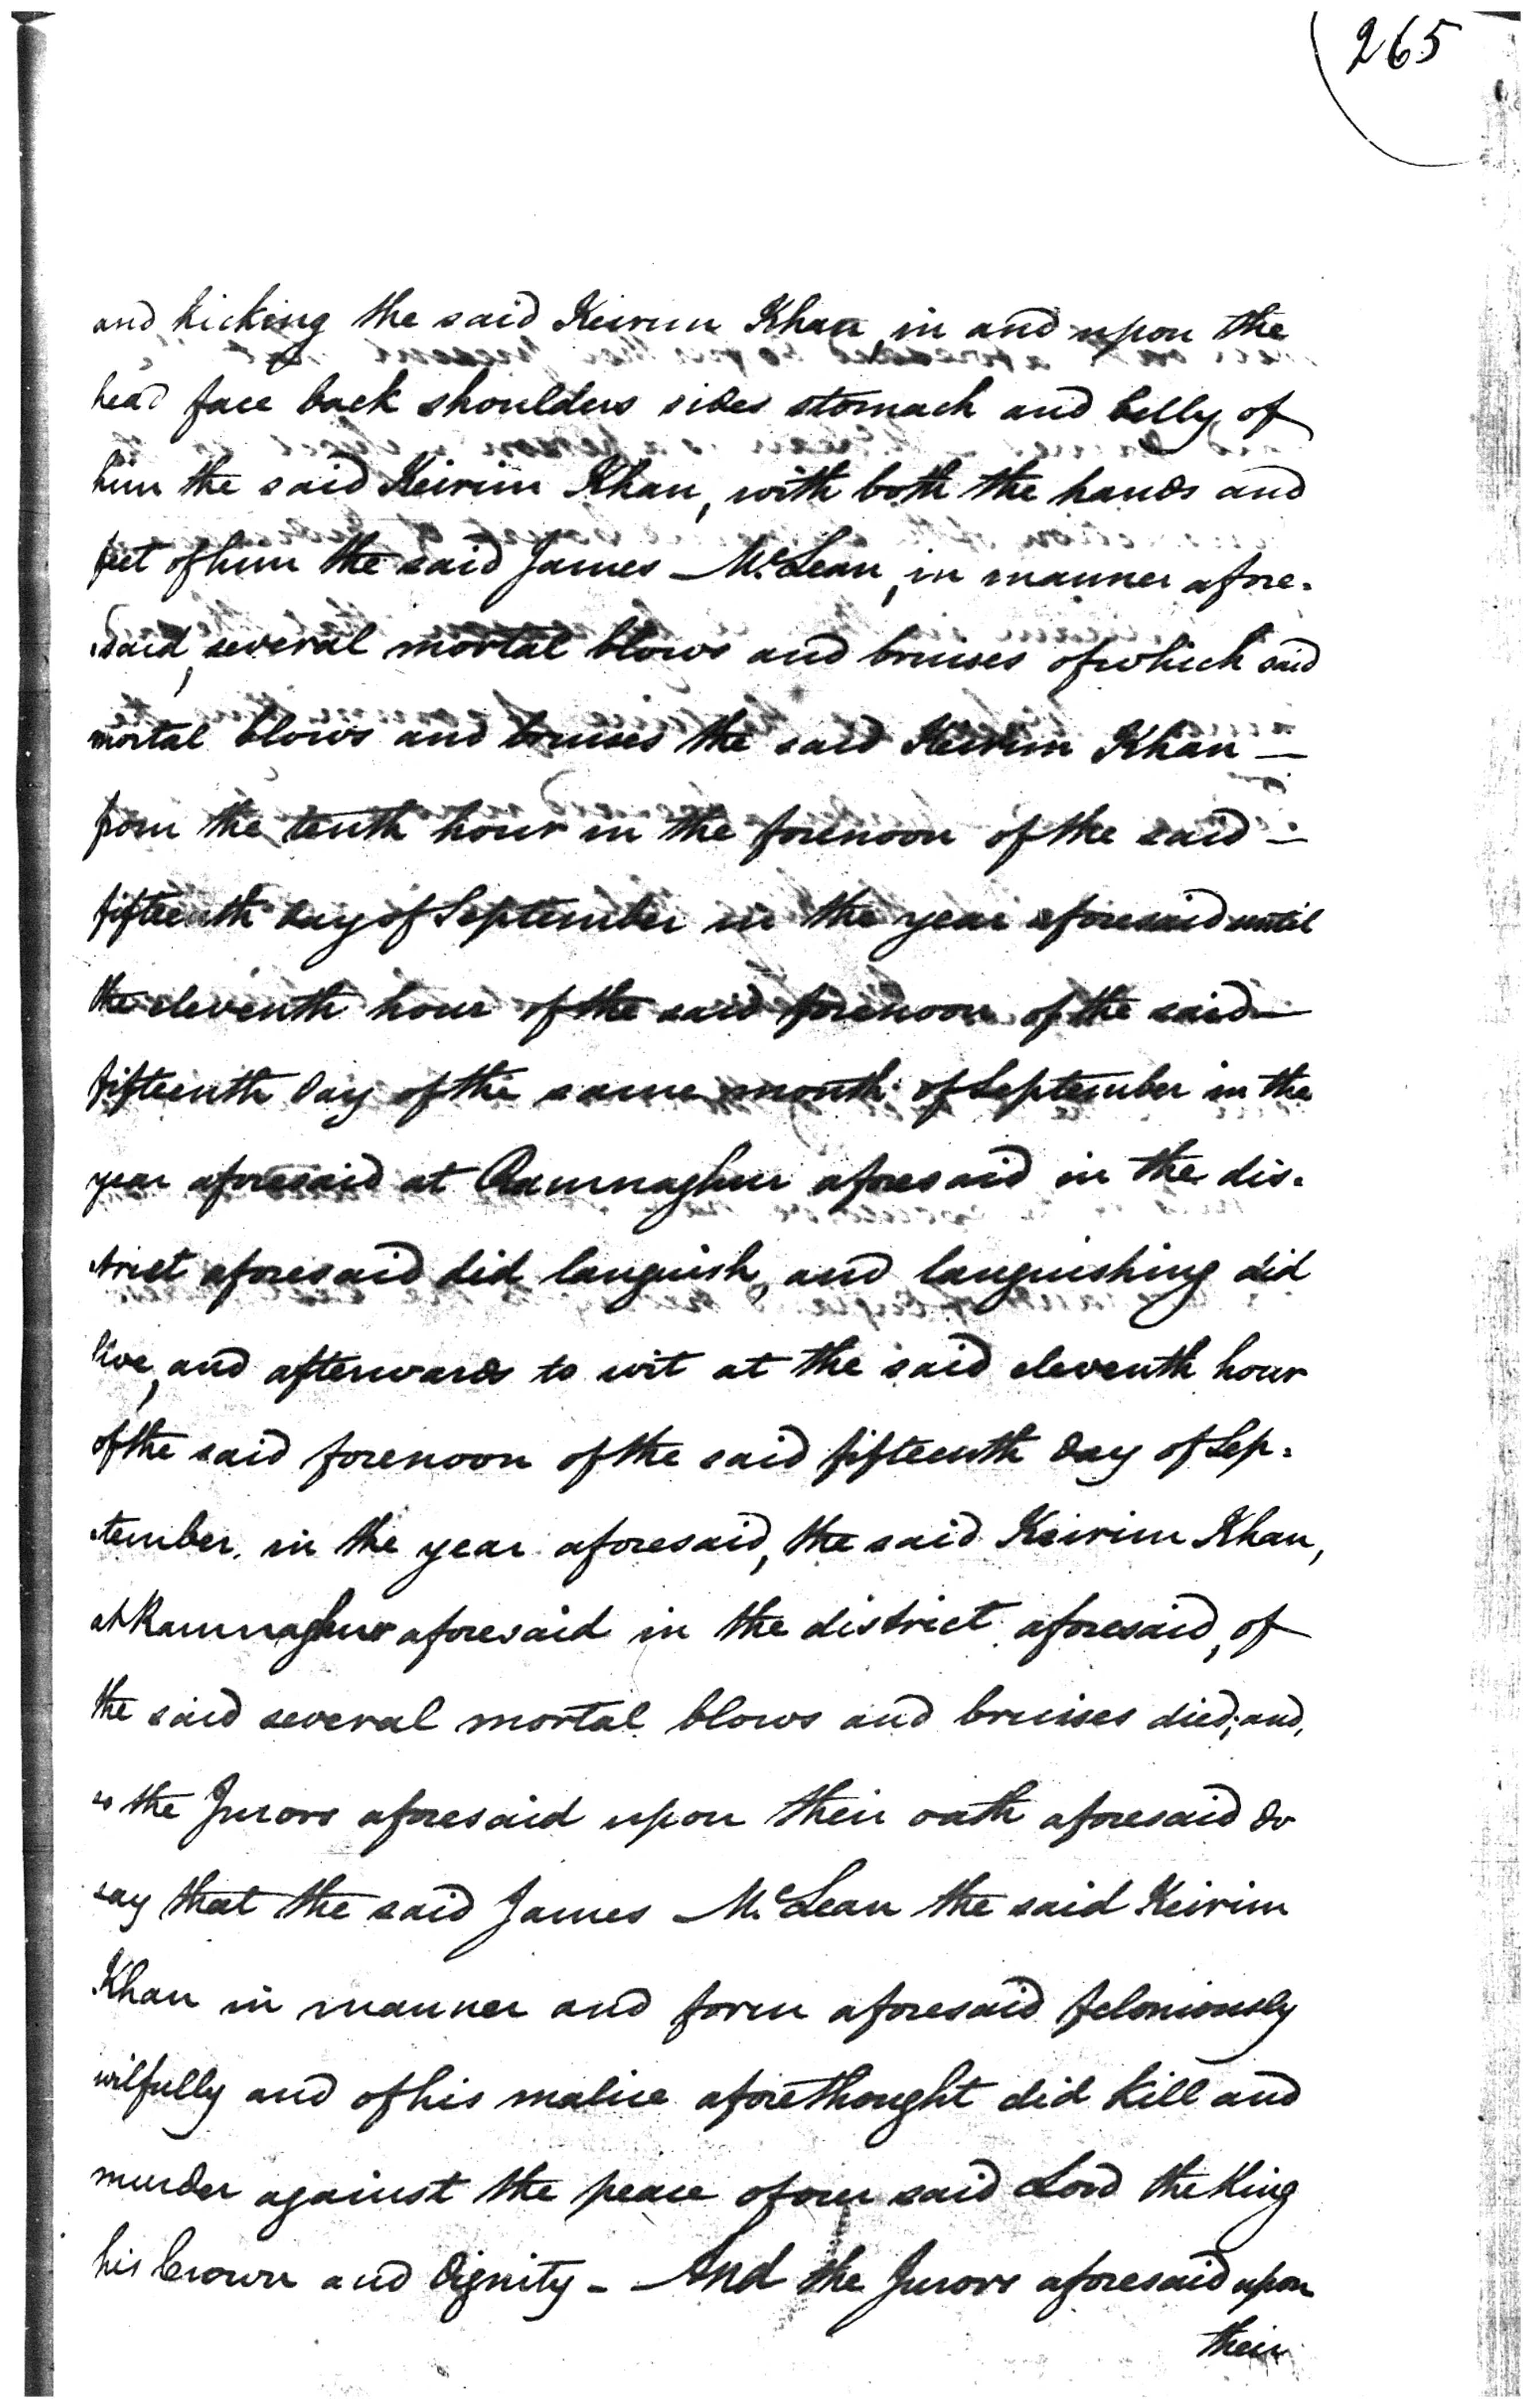 265
and kicking the said Keirim Khan in and upon the
head face back shoulders sides stomach and belly of
him the said Keirim Khan, with both the hands and
feet of him the said James McLean, in manner afore-
said, several mortal blows and bruises of which said
mortal blows and bruises the said Keirim Khan —
from the tenth hour in the forenoon of the said —
fifteenth day of September in the year aforesaid until
the eleventh hour of the said forenoon of the said —
fifteenth day of the same month of September in the
year aforesaid at Ramnaghur aforesaid in the dis-
trict aforesaid did languish, and languishing did
live, and afterwards to wit at the said eleventh hour
of the said forenoon of the said fifteenth day of Sep-
tember in the year aforesaid, the said Keirim Khan,
at Ramnaghur aforesaid in the district aforesaid, of
the said several mortal blows and bruises died; and,
so the Jurors aforesaid upon their oath aforesaid do
say that the said James McLean the said Keirim
Khan in manner and form aforesaid feloniously
wilfully and of his malice aforethought did kill and
murder against the peace of our said Lord the King
his Crown and Dignity - And the Jurors aforesaid upon
their